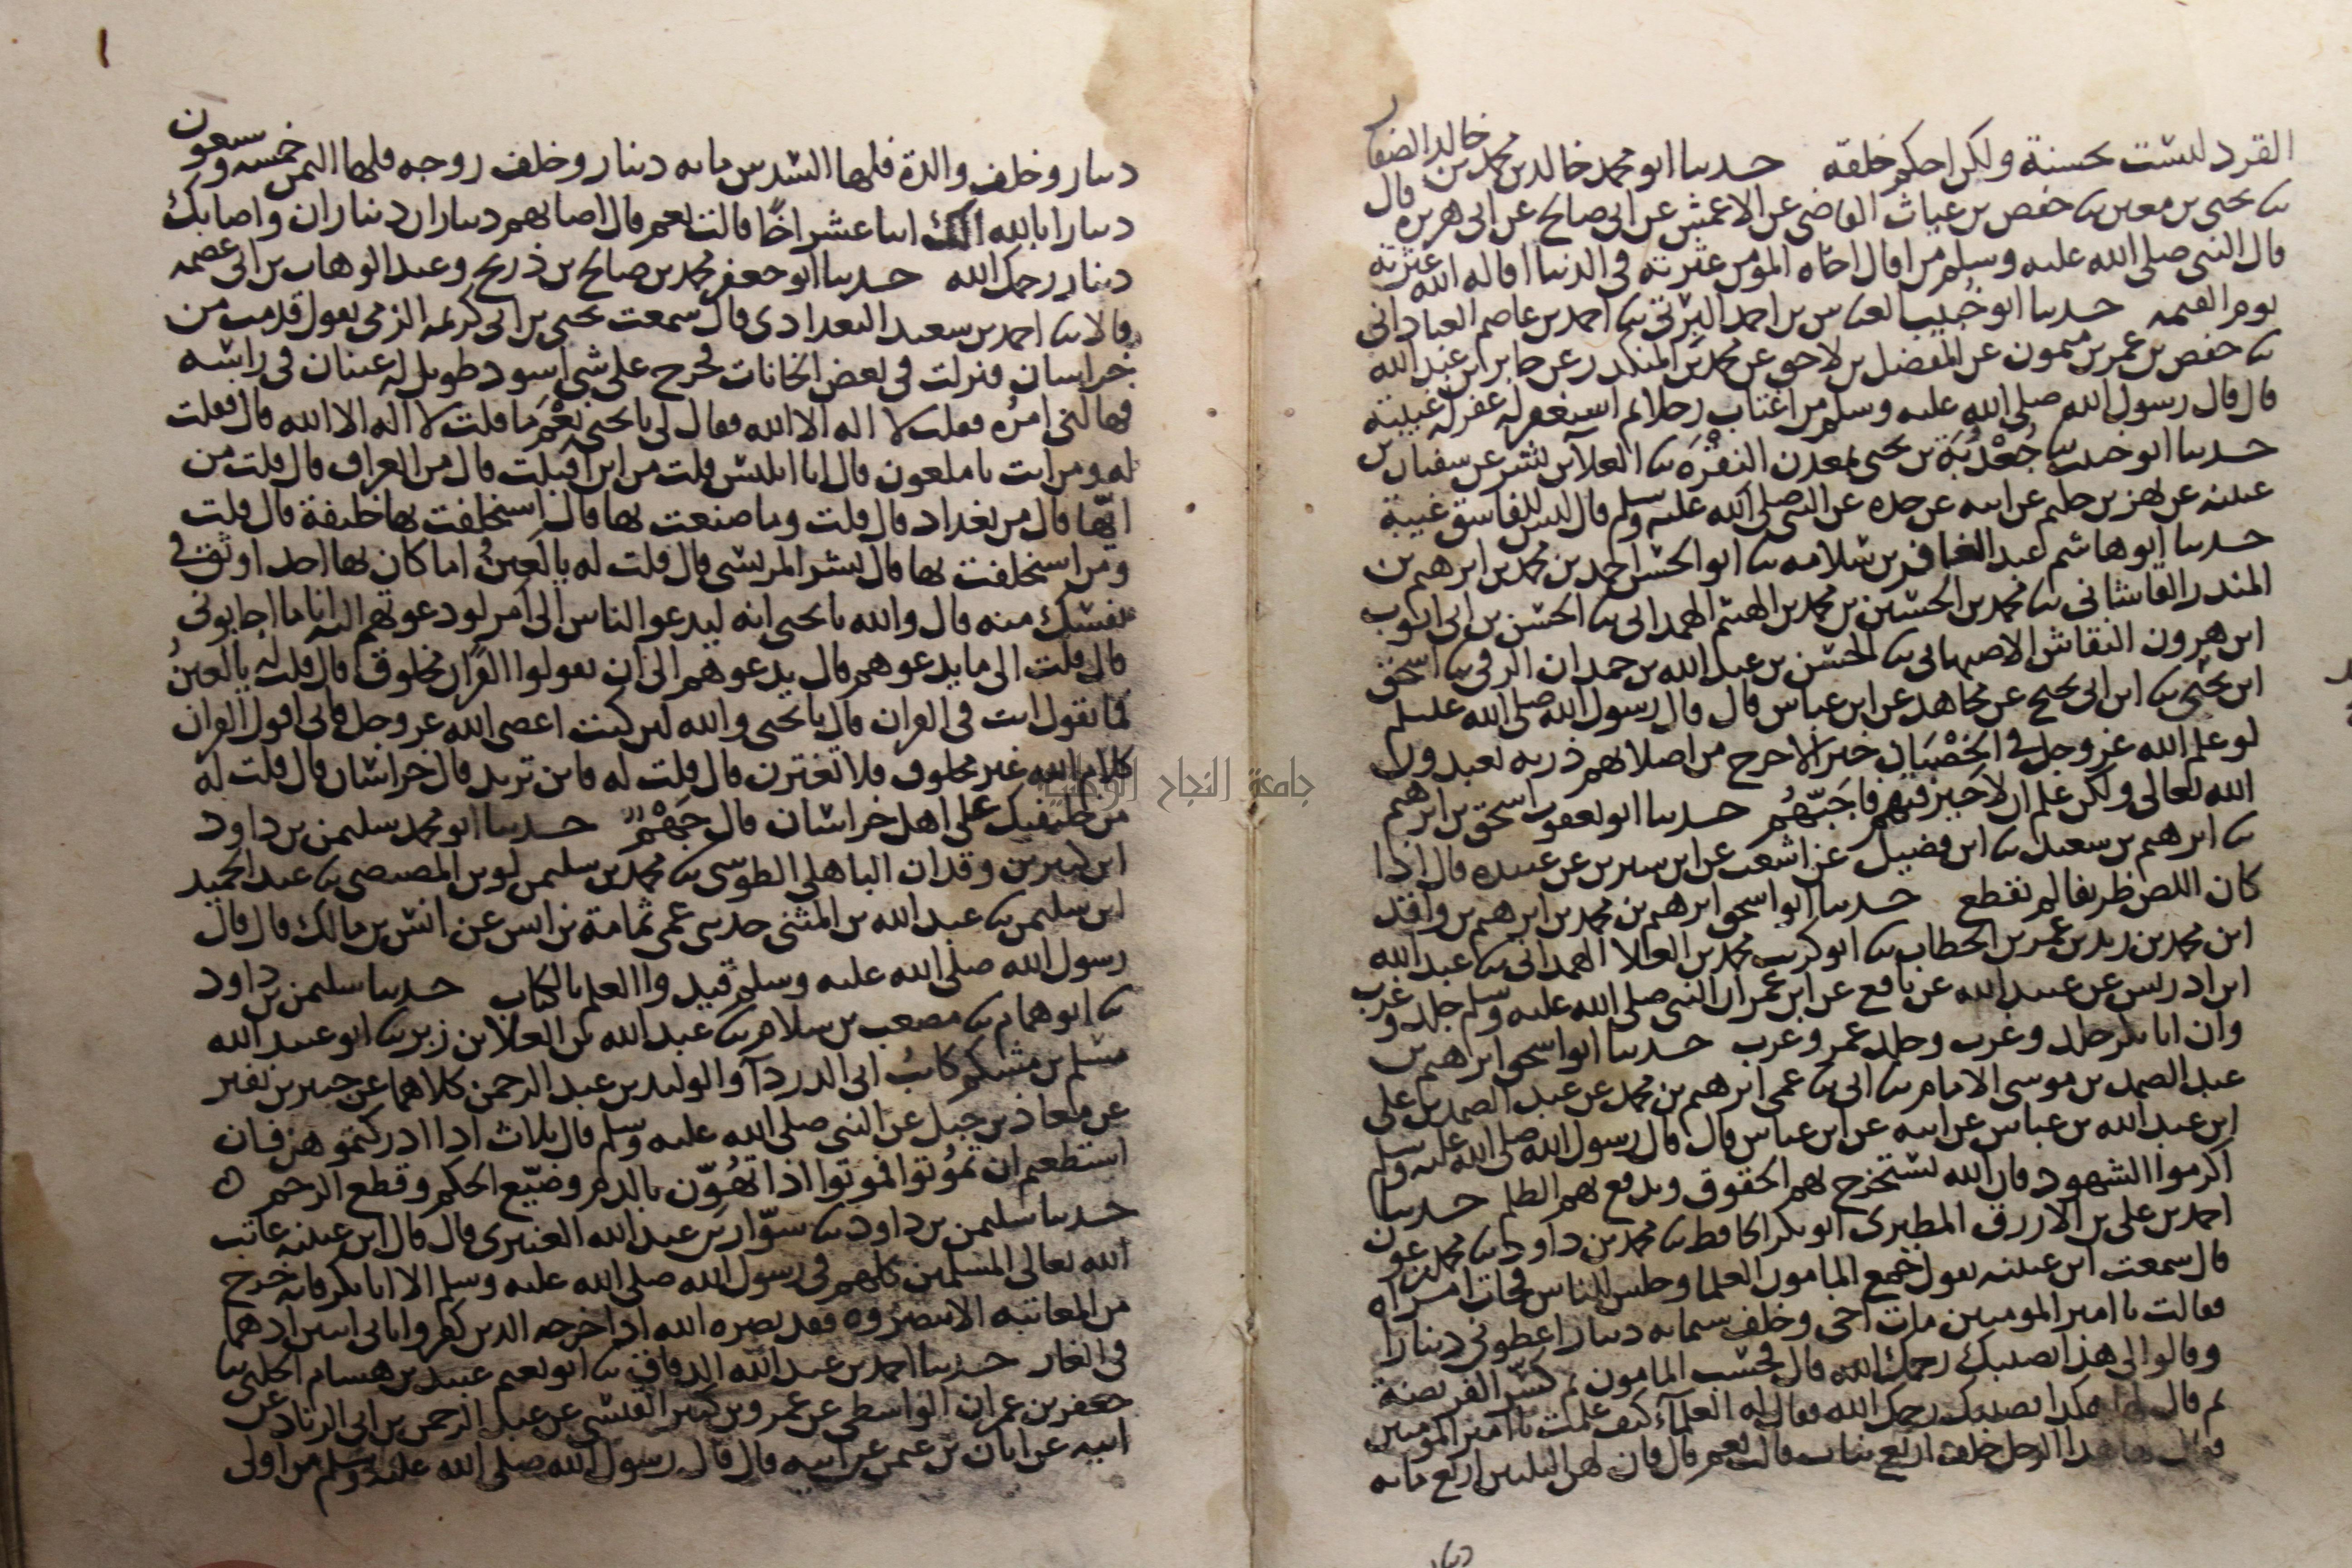 القرد ليست بحسنة ولكن احكم خلقه حدثنا ابو محمد خالد بن محمد بن خالد الصفار
ثنا يحيى بن معين ثنا حفص بن غياث القاضي عن الاعمش عن ابي صالح عن ابي هريرة قال
قال النبي صلى الله عليه وسلم من اقال اخاه المومن عثرته في الدنيا اقاله الله عثرته
يوم القيمة حدثنا ابو خبيب العباس بن احمد البرتي ثنا احمد بن عاصم العباداني
ثنا حفص بن عمر بن ميمون عن المفضل بن لاحق عن محمد بن المنكدر عن جابر ابن عبد الله
قال قال رسول الله صلى الله عليه وسلم من اغتاب رجلا ثم استغفر له غفر له غيبته
حدثنا ابو خليد جعدبة بن يحيى بمعدن النقرة ثنا العلآ بن بشر عن سفيان بن
عيينة عن بهز بن حكيم عن ابيه عن جده عن النبي صلى الله عليه وسلم قال ليس للفاسق غيبة
حدثنا ابو هاشم عبد الغافر بن سلامه ثنا ابو الحسن احمد بن محمد بن ابرهيم بن
المنذر القاشاني ثنا محمد بن الحسين بن محمد بن الهيثم الهمداني ثنا الحسن بن ابي ايوب
ابن هرون النقاش الاصبهاني ثنا الحسن بن عبد الله بن حمدان الرقي ثنا اسحق
ابن يحيى ثنا ابن ابي نجيح عن مجاهد عن ابن عباس قال قال رسول الله صلى الله عليه وسلم
لو علم الله عز وجل في الخصيان خيرا لاخرج من اصلابهم ذرية يعبدون
الله تعالى ولكن علم ان لا خير فيهم فاجبهم حدثنا ابو يعقوب اسحق بن ابرهيم
ثنا ابرهيم بن سعيد ثنا ابن فضيل عن اشعث عن ابن سيرين عن عبيده قال اذا
كان اللص ظريفا لم يقطع حدثنا ابو اسحق ابرهيم بن محمد بن ابرهيم بن واقد
ابن محمد بن زيد بن عمر بن الخطاب ثنا ابو كريب محمد بن العلا الهمداني ثنا عبد الله
ابن ادريس عن عبيد الله عن نافع عن ابن عمر ان النبي صلى الله عليه وسلم جلد وغرب
وان ابا بكر جلد وغرب وجلد عمر وغرب حدثنا ابو اسحق ابرهيم بن
عبد الصمد بن موسى الامام ثنا ابي ثنا عمي ابرهيم بن محمد عن عبد الصمد بن علي
ابن عبد الله بن عباس عن ابيه عن ابن عباس قال قال رسول الله صلى الله عليه وسلم
اكرموا الشهود فان الله يستخرج بهم الحقوق ويدفع بهم الظلم حدثنا
احمد بن علي بن الازرق المطيري ابو بكر الحافظ ثنا محمد بن داود ثنا محمد بن عون
قال سمعت ابن عيينه يقول جمع المامون العلما وجلس للناس فجات امراة
فقالت يا امير المومنين مات اخي وخلف ستمايه دينار اعطوني دينارا
وقالوا لي هذا نصيبك رحمك الله قال فحسب المامون ثم كسر الفريضة
ثم قال لها هكذا نصيبك رحمك الله فقال له العلمآء كيف علمت يا امير المومنين
فقال لها هذا الرجل خلف اربع بنات قالت نعم قال فان لهن الثلثين اربع مايه
دينار
دينار وخلف والدة فلها السدس مايه دينار وخلف زوجه فلها الثمن خمسه وسبعون
دينارا بالله الك اثنا عشر اخا قالت نعم قال اصابهم ديناران ديناران واصابك
دينار رحمك الله حدثنا ابو جعفر محمد بن صالح بن ذريح وعبد الوهاب بن ابي عصمه
قالا ثنا احمد بن سعيد البغدادي قال سمعت يحيى بن ابي كريمه الزمي يقول قدمت من
خراسان فنزلت في بعض الخانات فخرج علي شي اسود طويل له عينان في راسه
فهالني امره فقلت لا اله الا الله فقال لي يا يحيى نعم ما قلت لا اله الا الله قال فقلت
له ومن انت يا ملعون قال انا ابليس قلت من اين اقبلت قال من العراق قال قلت من
ايها قال من بغداد قال قلت وما صنعت بها قال استخلفت بها خليفة قال قلت
ومن استخلفت بها قال بشر المريسي قال قلت له يا لعين اما كان بها احد اوثق في
نفسك منه قال والله يا يحيى انه ليدعو الناس الى امر لو دعوتهم اليه انا ما اجابوني
قال قلت الى ما يدعوهم قال يدعوهم الى ان يقولوا القران مخلوق قال قلت له يا لعين
فما تقول انت في القران قال يا يحيى والله لين كنت اعصي الله عز وجل فاني اقول القران
كلام الله غير مخلوق فلا تغترن قال قلت له فاين تريد قال خراسان قال قلت له
من خليفتك على اهل خراسان قال جهم حدثنا ابو محمد سليمن بن داود
ابن كثير بن وقدان الباهلي الطوسي ثنا محمد بن سليمن لوين المصيصي ثنا عبد الحميد
ابن سليمن ثنا عبد الله بن المثنى حدثني عمي ثمامة بن انس عن انس بن مالك قال قال
رسول الله صلى الله عليه وسلم قيدوا العلم بالكتاب حدثنا سليمن بن داود
ثنا ابو همام ثنا مصعب بن سلام ثنا عبد الله بن العلا بن زبر ثنا ابو عبيد الله
مسلم بن مشكم كاتب ابي الدردآ والوليد بن عبد الرحمن كلاهما عن جبير بن نفير
عن معاذ بن جبل عن النبي صلى الله عليه وسلم قال ثلاث اذا ادركتموهن فان
استطعتم ان تموتوا فموتوا اذا تهون بالدم وضيع الحكم وقطع الرحم ه
حدثنا سليمن بن داود ثنا سوار بن عبد الله العنبري قال قال ابن عيينه عاتب
الله تعالى المسلمين كلهم في رسول الله صلى الله عليه وسلم الا ابا بكر فانه خرج
من المعاتبه الا تنصروه فقد نصره الله اذ اخرجه الذين كفروا ثاني اثنين اذ هما
في الغار حدثنا احمد بن عبد الله الدقاق ثنا ابو نعيم عبيد بن هشام الحلبي ثنا
جعفر بن عمران الواسطي عن عمرو بن كثير القيسي عن عبد الرحمن بن ابي الزناد عن
ابيه عن ابان بن عثمن عن ابيه قال قال رسول الله صلى الله عليه وسلم من اولى
جامعة النجاح الوطنية